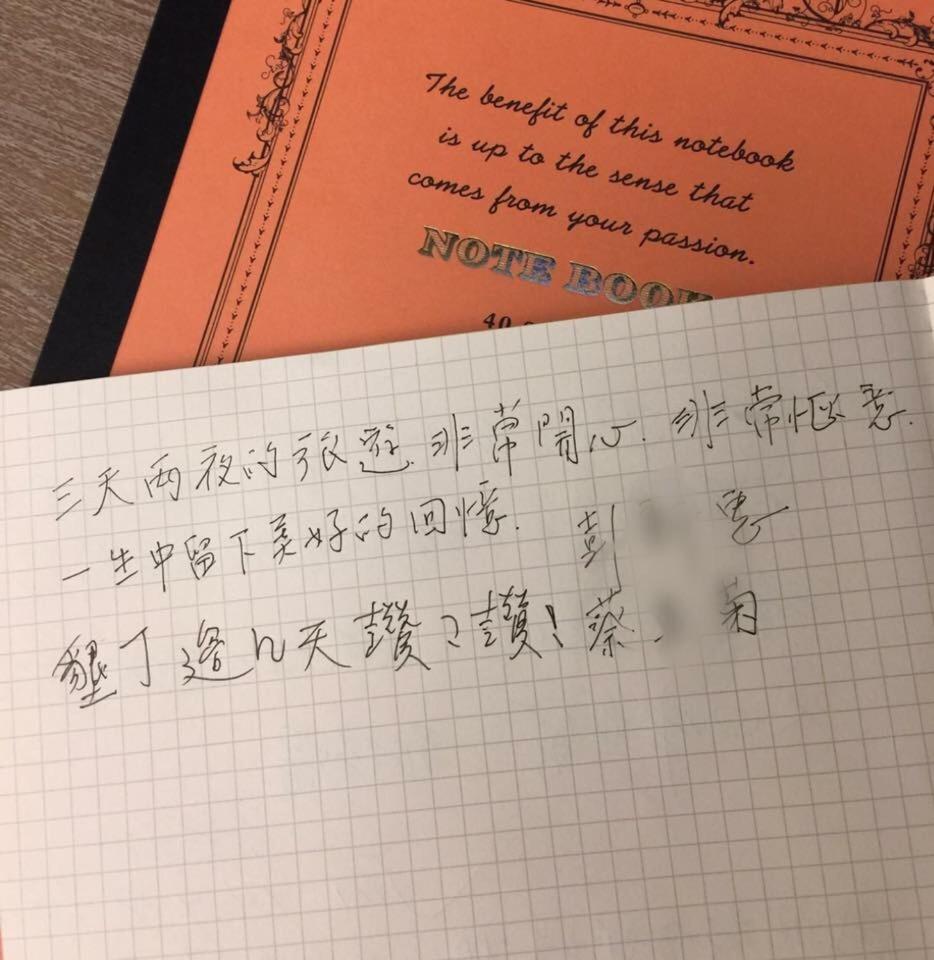 The benefit of this notebook
is up to the sense that
comes from your passion.
NOTE BOOK
40
三天兩夜的旅遊.非常開心.非常愜意.
一生中留下美好的回憶. 彭
墾丁這几天讚々讚! 蔡